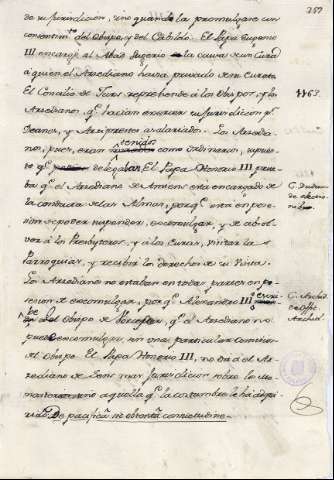 257
de su jurisdiccion, sino quando la promulgare con
consentim.to del Obispo, y del Cabildo. El Papa Eugenio
III encargó al Abad Sugerio la causa de un Cura
à quien el Arzediano havia privado de su Cureto
El Concilio de Tours reprehende à los Obispos, y los
1163.
Arzedianos, q.e hacian exercer su Jurisdiccion p.r
Deanes, y Arziprestes asalariados. Los Arzedia-
nos, pues, eran tenidos como Ordinarios, supues-
to q.e delegaban. El Papa Honorio III prue-
ba q.e el Arzediano de Amiens està encargado de
la conducta de las Almas, porq.e està en pose-
sion de poder suspender, excomulgar, y de absol-
ver à los Presbyteros, y à los Curas, visitar las
Parroquias, y recibir los derechos de su Visita.
Los Arzedianos no estaban en todas partes en po-
sesion de excomulgar, porq.e Alexandro III
al Obispo de q.e el Arzediano no
puede excomulgar, sin una particular comision
del Obispo. El Papa Honorio III, no dà à el Ar-
zediano de Sens mas Jurisdiccion sobre los Mo-
nasterios sino aquella q.e la costumbre le ha adqui-
rido.